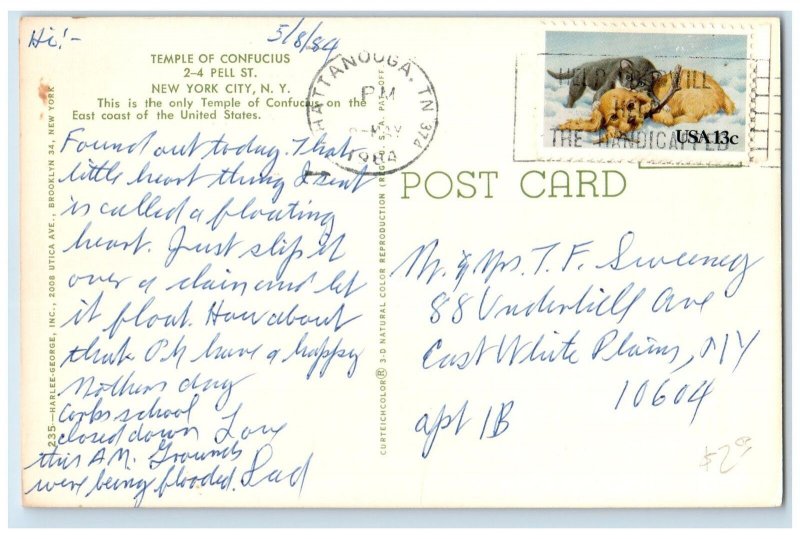 Hi!-
5/8/84
TEMPLE OF CONFUCIUS
2-4 PELL ST.
NEW YORK CITY, N. Y.
This is the only Temple of Confucius on the
East coast of the United States.
Found out today. That
little heart thing I sent
is called a floating
heart. Just slip it
over a chain and let
it float. How about
that. Oh have a happy
Mothers day
Corps school
closed down
this A.M. Grounds
were being flooded.
Love
Dad
235-HARLEE-GEORGE, INC., 2008 UTICA AVE., BROOKLYN 34, NEW YORK
CURTEICHCOLOR® 3-D NATURAL COLOR REPRODUCTION (REG'D. U.S.A. PAT. OFF.)
CHATTANOOGA, TN 374
PM
MAY
1984
HELP GOODWILL
HELP
THE HANDICAPPED
USA 13c
POST CARD
Mr. & Mrs. T. F. Sweeney
88 Underhill Ave
East White Plains, NY
10604
apt 1B